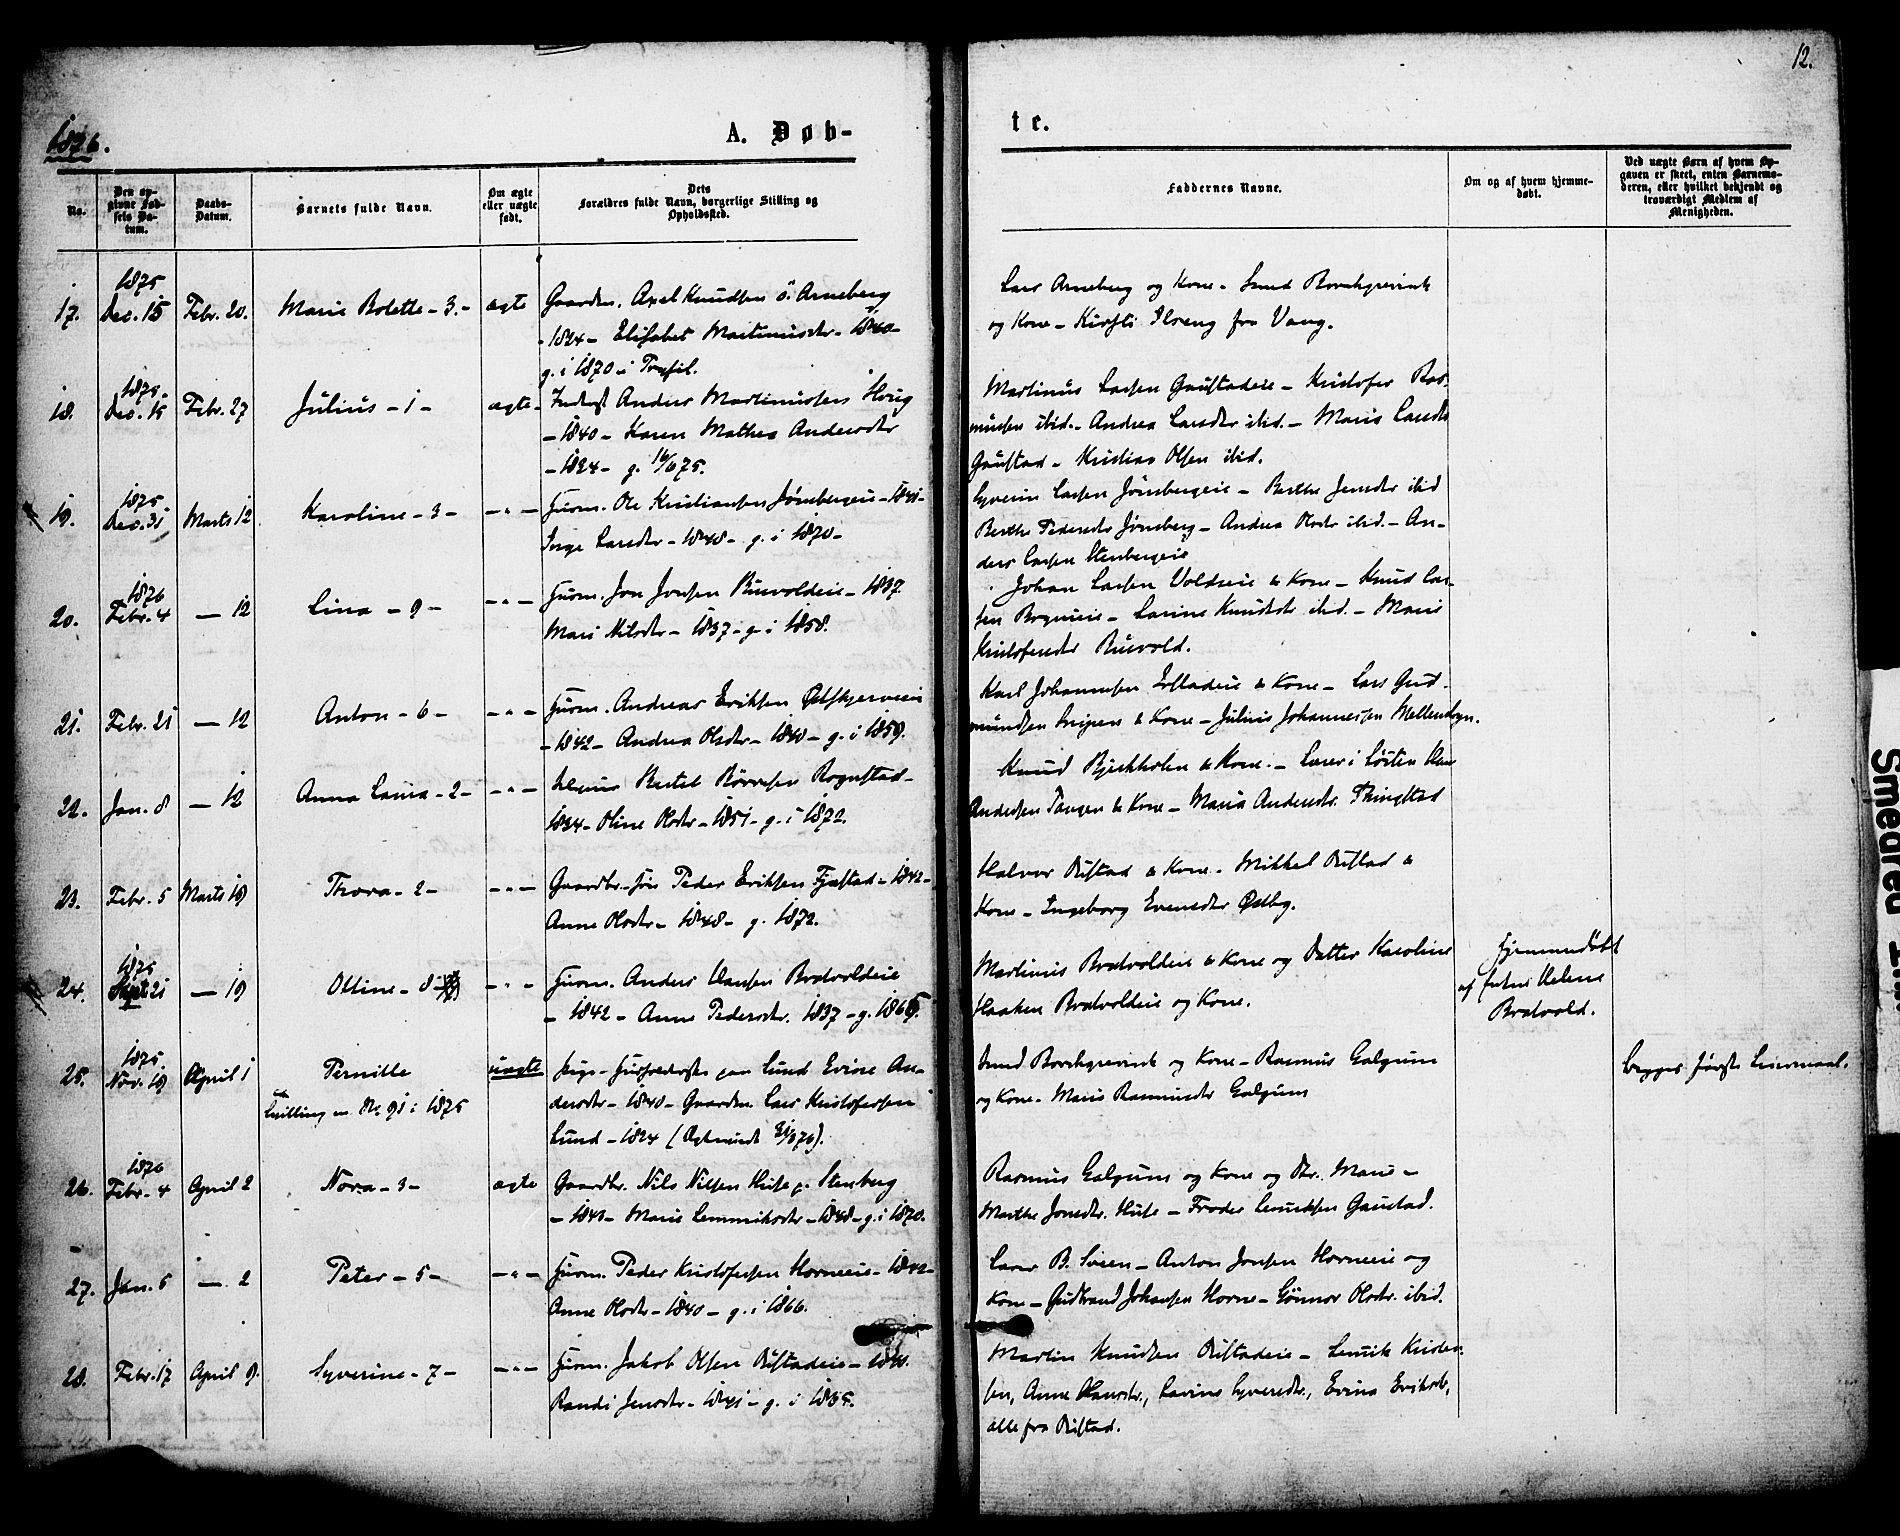 12.
1876.
A. Døb-
te.
No.
Den opgivne Fødsels Datum.
Daabs-Datum.
Barnets fulde Navn.
Om ægte eller uægte født.
Dets Forældres fulde Navn, borgerlige Stilling og Opholdssted.
Faddernes Navne.
Om og af hvem hjemmedøbt.
Ved uægte Børn af hvem Opgaven er skeet, enten Barnemoderen, eller hvilket bekjendt og troværdigt Medlem af Menigheden.
17. 1875 Dec. 15 Febr. 20. Marie Bolette - 3. - ægte
Gaardm. Axel Knudsen ö. Arneberg
- 1824 - Elisabet Martinusdtr - 1840 -
g. i 1870 i Trysil.
Lars Arneberg og Kone - Svend Borchgrevink
og Kone - Kirsti Ilseng fra Vang.
18. 1875 Dec. 15 Febr. 27 Julius - 1 - ægte -
Inderst Anders Martinussen
- 1840 - Karen Mathea Andersdtr
- 1824 - g. 16/6 75.
Martinus Larsen Gaustadeie - Kristofer Ras-
mussen ibid. - Andrea Larsdtr ibid. - Maris Larsdtr
Gaustad - Kristian Olsen ibid.
19. 1875 Dec. 31 Marts 12 Karoline - 3 - - " -
Husm. Ole Kristiansen Jønsbergeie - 1841 -
Inge Larsdtr - 1848 - g. i 1870 -
Syverin Larsen Jønsbergeie - Berthe Jensdtr ibid
Berthe Pedersdtr Jønsberg - Andrea Olsdtr ibid. - An-
ders Larsen Stenbergeie
20. 1876 Febr. 4 - 12 Lina - 9 - - " -
Husm. Jon Jonsen Ruvoldeie - 1837.
Mari Nilsdtr - 1837 - g. i 1858.
Johan Larsen Voldseie & Kone - Knud Lar-
sen - Larine Knudsdtr ibid. - Marie
Kristofersdtr Ruvold.
21. Febr. 21 - 12 Anton - 6 - - " -
Husm. Andreas Eriksen
- 1842 - Andrea Olsdtr - 1840 - g. i 1859.
Karl Johannesen & Kone - Lars Gud-
mundsen & Kone - Julius Johannesen Mellembyn.
22. Jan. 8 - 12 Anna Laura - 2 - - " -
Bertel Børresen Rognstad -
1834 - Oline Olsdtr - 1851 - g. i 1872.
Knud Bjerkholen & Kone. - Lærer i Løiten
Andersen Tangen & Kone - Maria Andersdtr. Thingstad
23. Febr. 5 Marts 19 Thora - 2 - - " -
Gaardbr. Peder Eriksen Fjæstad - 1842 -
Anne Olsdtr - 1848 - g. 1872.
Halvor Ristad & Kone - Mikkel Ristad &
Kone - Ingeborg Evensdtr Østby.
24. 1875 Sept. 21 - 19 Oline - 8 - - " -
Husm. Anders Hansen Bratvoldeie
- 1842 - Anne Pedersdtr. 1837 - g. 1865.
Martinus Bratvoldeie & Kone og Datter Karoline
Haaken Bratvoldeie og Kone.
Hjemmedøbt
af Helene
Bratvold.
25. 1875 Nov. 19 April 1 Pernille uægte
Tvilling m. No 91 i 1875
Pige - paa Lund Evine An-
dersdtr - 1840 - Gaardm. Lars Kristofersen
Lund - 1824 (
Svend Borchgrevink og Kone - Rasmus Galgum
og Kone - Maris Rasmusdtr Galgum
begges første Leiermaal.
26. 1876 Febr. 4 April 2 Nora - 3 - ægte
Gaardbr. Nils Nilsen Huse p. Stenberg
- 1840 - Marie Lemmiksdtr - 1848 - g. i 1870.
Rasmus Galgum og Kone og Dtr. Marie -
Marthe Jonsdtr. Huse - Gaustad.
27. Jan. 5 - 2 Peter - 5 - - " -
Husm. Peder Kristofersen Horneeie - 1842 -
Anne Olsdtr - 1840 - g. i 1866.
Lærer B. Sveen - Anton Jonsen Horneeie og
Kone - Gudbrand Johansen Horne - Gunnor Olsdtr. ibid.
28. Febr. 17 April 9. Syverine - 7 - - " -
Husm. Jakob Olsen Ristadeie -
Randi Jensdtr - 1841 - g. i
Martin Knudsen Ristadeie -
Anne Hansdtr., Lavine Syversdtr., Evina Eriksdtr,
alle fra Ristad.
Smeared